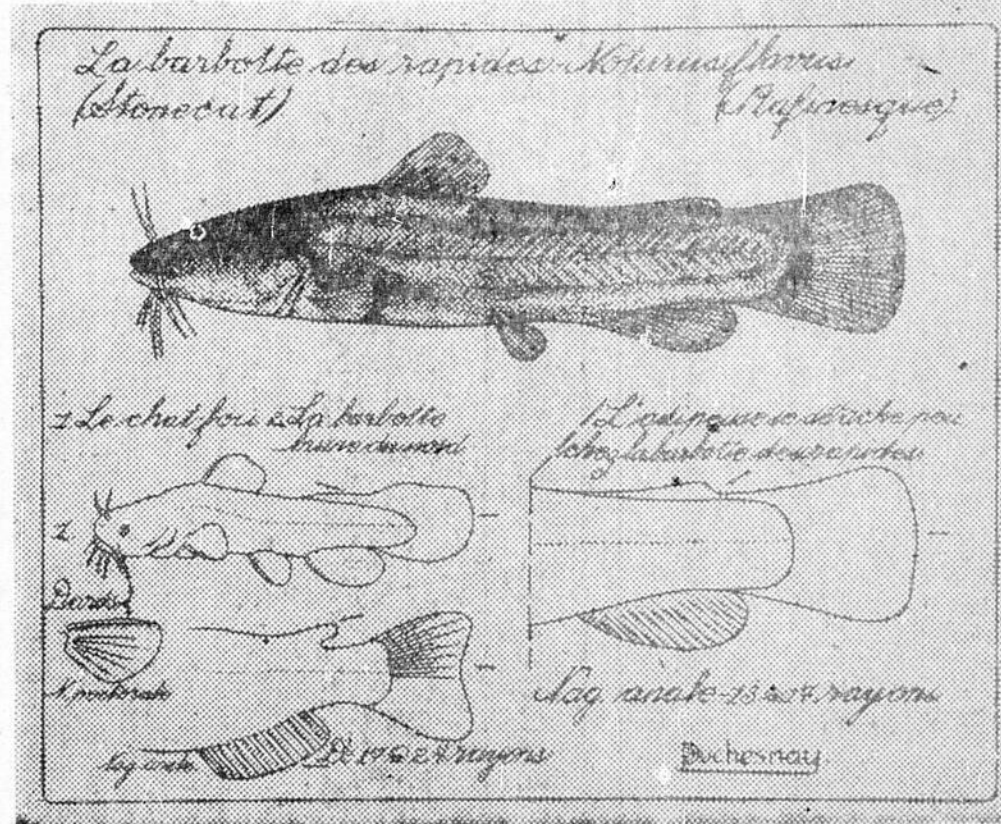 La barbotte des rapides Noturus flavus
(Stonecat) (Rafinesque)
1 Le chat fou 2 La barbotte
brune du nord
1 L'adipeuse se détache peu
chez la barbotte des rapides
1
Dards
N. pectorale
Nag. anale
De 17 à 24 rayons
Nag. anale - 15 à 17 rayons
Duchesnay